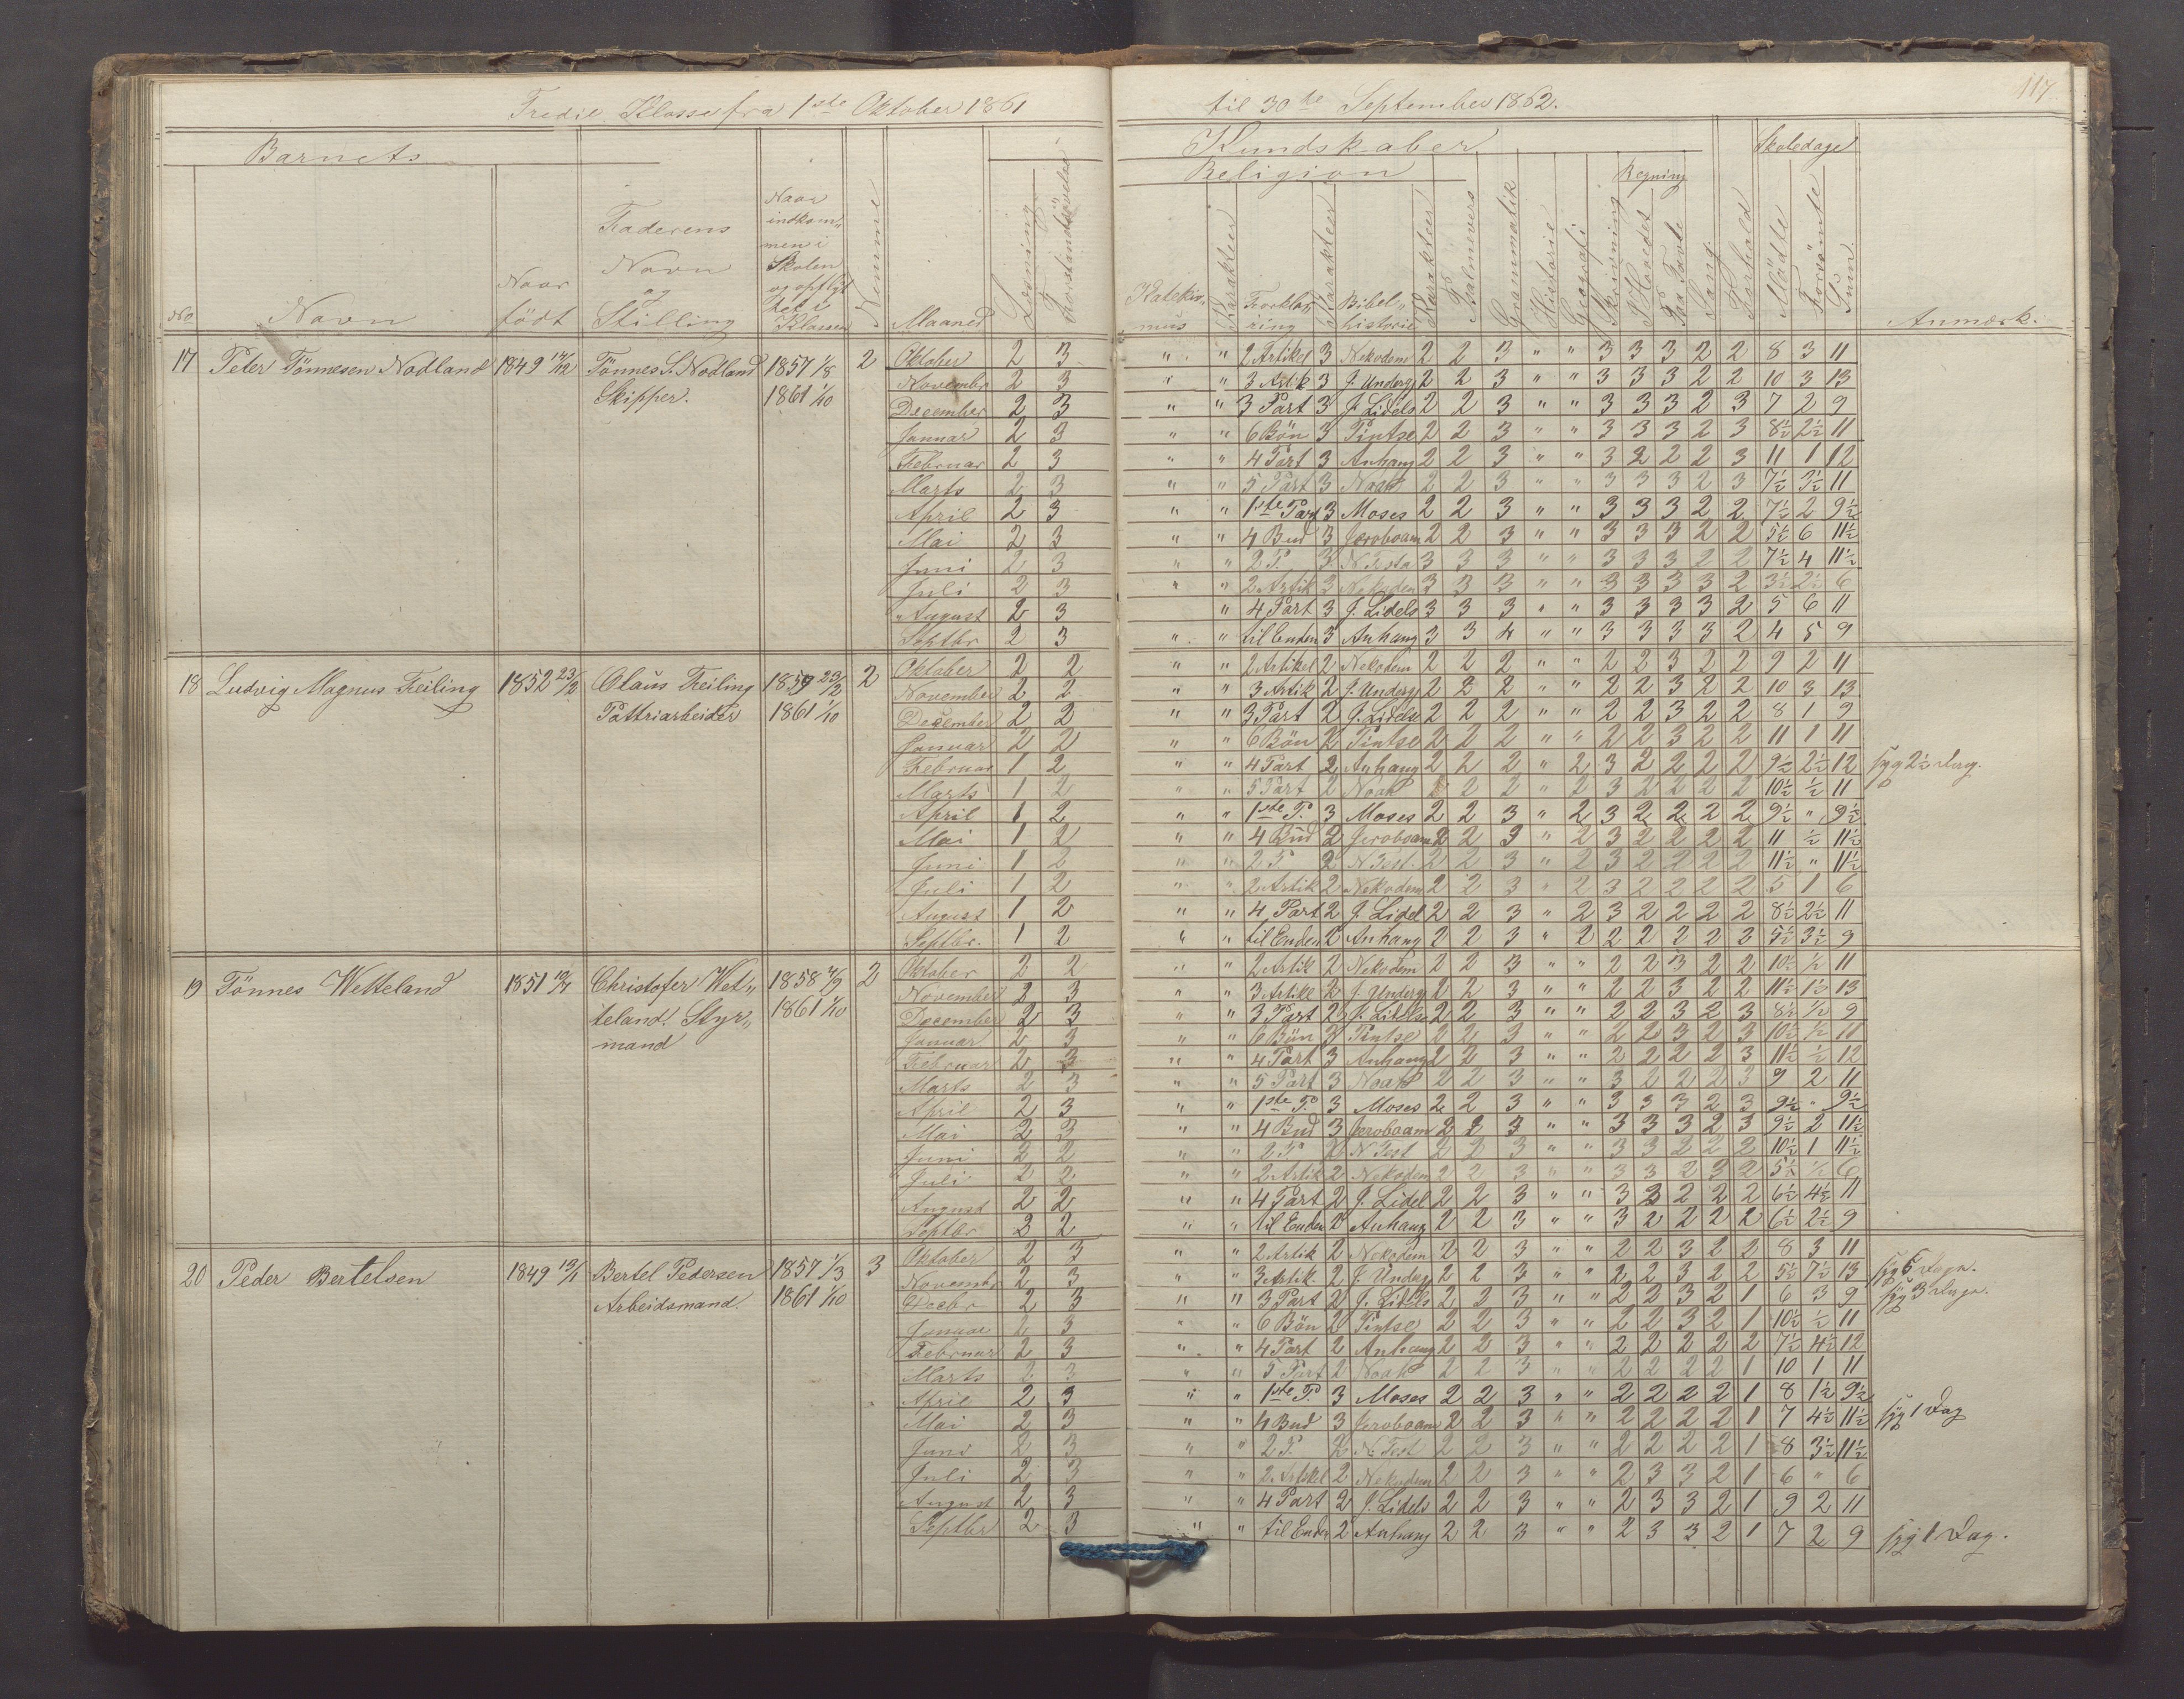 Tredie Klasse fra 1ste Oktober 1861 til 30te September 1862.
117
Barnets
Kundskaber
Skoledage
Religion
Regning
No
Navn
Naar födt
Faderens Navn og Stilling
Naar indkommen i Skolen og opflyttet i Klassen
Nummer
Maaned
Læsning
Forstandsövelse
Katekismus
Karakteer
Forklaring
Karakteer
Bibelhistorie
Karakteer
Psalmevers
Grammatik
Historie
Geografi
Skrivning
I Hovedet
Paa Tavle
Sang
Forhold
Mödte
Forsömte
Sum
Anmærk.
17 Peter Tönnesen Nodland 1849 14/12 Tönnes S. Nodland 1857 1/8 2 Oktober 2 3 " " 2 Artikel 3 Nekodem 2 2 3 " " 3 3 3 2 2 8 3 11
Skipper. 1861 1/10 November 2 3 " " 3 Artik 3 J. Underg 2 2 3 " " 3 3 3 2 2 10 3 13
December 2 3 " " 3 Part 3 J. Lidels 2 2 3 " " 3 3 3 2 3 7 2 9
Januar 2 3 " " 6 Bön 3 Pintse 2 2 3 " " 3 3 3 2 3 8½ 2½ 11
Februar 2 3 " " 4 Part 3 Anhang 2 2 3 " " 3 2 2 2 3 11 1 12
Marts 2 3 " " 5 Part 3 Noah 2 2 3 " " 3 3 3 2 3 7½ 3½ 11
April 2 3 " " 1ste Part 3 Moses 2 2 3 " " 3 3 3 2 2 7½ 2 9½
Mai 2 3 " " 4 Bud 3 Jeroboam 2 2 3 " " 3 3 3 2 2 5½ 6 11½
Juni 2 3 " " 2 P. 3 N. Testa 3 3 3 " " 3 3 3 2 2 7½ 4 11½
Juli 2 3 " " 2 Artik 3 Nekodem 3 3 3 " " 3 3 3 3 2 3½ 2½ 6
August 2 3 " 4 Part 3 J. Lidels 3 3 3 " " 3 3 3 3 2 5 6 11
Septbr 2 3 " " til Enden 3 Anhang 3 3 4 " " 3 3 3 3 2 4 5 9
18 Ludvig Magnus Feiling 1852 23/2 Olaus Feiling 1859 23/2 2 Oktober 2 2 " " 2 Artikel 2 Nekodem 2 2 2 " " 2 2 3 2 2 9 2 11
Pottriarbeider 1861 1/10 November 2 2 " " 3 Artik 2 J. Underg 2 2 2 " " 2 2 3 2 2 10 3 13
December 2 2 " " 3 Part 2 J. Lidels 2 2 2 " " 2 2 3 2 2 8 1 9
Januar 2 2 " " 6 Bön 2 Pintse 2 2 2 " " 2 2 3 2 2 11 1 11
Februar 1 2 " " 4 Part 2 Anhang 2 2 2 " 2 3 2 2 2 2 9½ 2½ 12 syg 2½ Dag.
Marts 1 2 " " 5 Part 2 Noah 2 2 2 " 2 3 2 2 2 2 10½ ½ 11
April 1 2 " " 1ste P. 3 Moses 2 2 3 " 2 3 2 2 2 2 9½ " 9½
Mai 1 2 " " 4 Bud 2 Jeroboam 2 2 3 " 2 3 2 2 2 2 11 ½ 11½
Juni 1 2 " " 2 P 2 N Test. 2 2 3 " 2 3 2 2 2 2 11½ " 11½
Juli 1 2 " " 2 Artik 2 Nekodem 2 2 3 " 2 3 2 2 2 2 5 1 6
August 1 2 " " 4 Part 2 J. Lidel 2 2 3 " 2 3 2 2 2 2 8½ 2½ 11
Septbr. 1 2 " " til Enden 2 Anhang 2 2 3 " 2 2 2 2 2 2 5½ 3½ 9
19 Tönnes Wetteland 1851 Christofer Wet„ 1858 4/9 2 Oktober 2 2 " " 2 Artik 2 Nekodem 2 2 3 " " 2 2 3 2 2 10½ ½ 11
teland. Styr„ 1861 1/10 November 2 3 " " 3 Artikl 2 J. Underg 2 2 3 " " 2 2 3 2 2 11½ 1½ 13
mand December 2 3 " " 3 Part 2 J. Lidelse 2 2 3 " " 2 2 3 2 3 8½ ½ 9
Januar 2 3 " " 6 Bön 3 Pintse 2 2 3 " " 2 2 3 2 3 10½ ½ 11
Februar 2 3 " " 4 Part 3 Anhang 2 2 3 " " 2 2 2 2 3 11½ ½ 12
Marts 2 3 " " 5 Part 3 Noah 2 2 3 " " 3 2 2 2 3 9 2 11
April 2 3 " " 1ste P. 3 Moses 2 2 3 " " 3 3 3 2 3 9½ " 9½
Mai 2 3 " " 4 Bud 3 Jeroboam 2 2 3 " " 3 3 3 2 3 9½ 2 11½
Juni 2 2 " " 2 P 2 N Test 2 2 3 " " 3 3 2 2 2 10½ 1 11½
Juli 2 2 " " 2 Artik 2 Nekodem 2 2 3 " " 3 3 2 3 2 5½ ½ 6
August 2 2 " " 4 Part 2 J. Lidel 2 2 3 " " 3 3 2 2 2 6½ 4½ 11
Septbr 2 2 " " til Enden 2 Anhang 2 2 3 " " 3 2 2 2 2 6½ 2½ 9
20 Peder Bertelsen 1849 Bertel Pedersen 1857 1/3 3 Oktober 2 3 " " 2 Artik 2 Nekodem 2 2 3 " " 2 2 3 2 2 8 3 11
Arbeidsmand. 1861 1/10 Novembr 2 3 " " 3 Artik. 2 J. Underg 2 2 3 " " 2 2 3 2 2 5½ 7½ 13 syg 6 Dage.
Decbr 2 3 " " 3 Part 2 J. Lidels 2 2 3 " " 2 2 3 2 1 6 3 9 syg 3 Dage.
Januar 2 3 " " 6 Bön 2 Pintse 2 2 3 " " 2 2 3 2 1 10½ ½ 11
Februar 2 3 " " 4 Part 2 Anhang 2 2 3 " " 2 2 2 2 2 7½ 4½ 12
Marts 2 3 " " 5 Part 2 Noah 2 2 3 " " 2 2 2 2 1 10 1 11
April 2 3 " " 1ste P. 3 Moses 2 2 3 " " 2 2 2 2 1 8 1½ 9½
Mai 2 3 " " 4 Bud 3 Jeroboam 2 2 3 " " 2 2 2 2 1 7 4½ 11½ syg 1 Dag
Juni 2 3 " " 2 P. 2 N. Test 2 2 3 " " 2 2 2 2 1 8 3½ 11½
Juli 2 3 " " 2 Artikel 2 Nekodem 2 2 3 " " 2 3 3 2 1 6 " 6
August 2 3 " " 4 Part 2 J. Lidels 2 2 3 " " 2 3 3 2 1 9 2 11
Septbr 2 3 " " til Enden 2 Anhang 2 2 3 " " 2 3 3 2 1 7 2 9 syg 1 Dag.